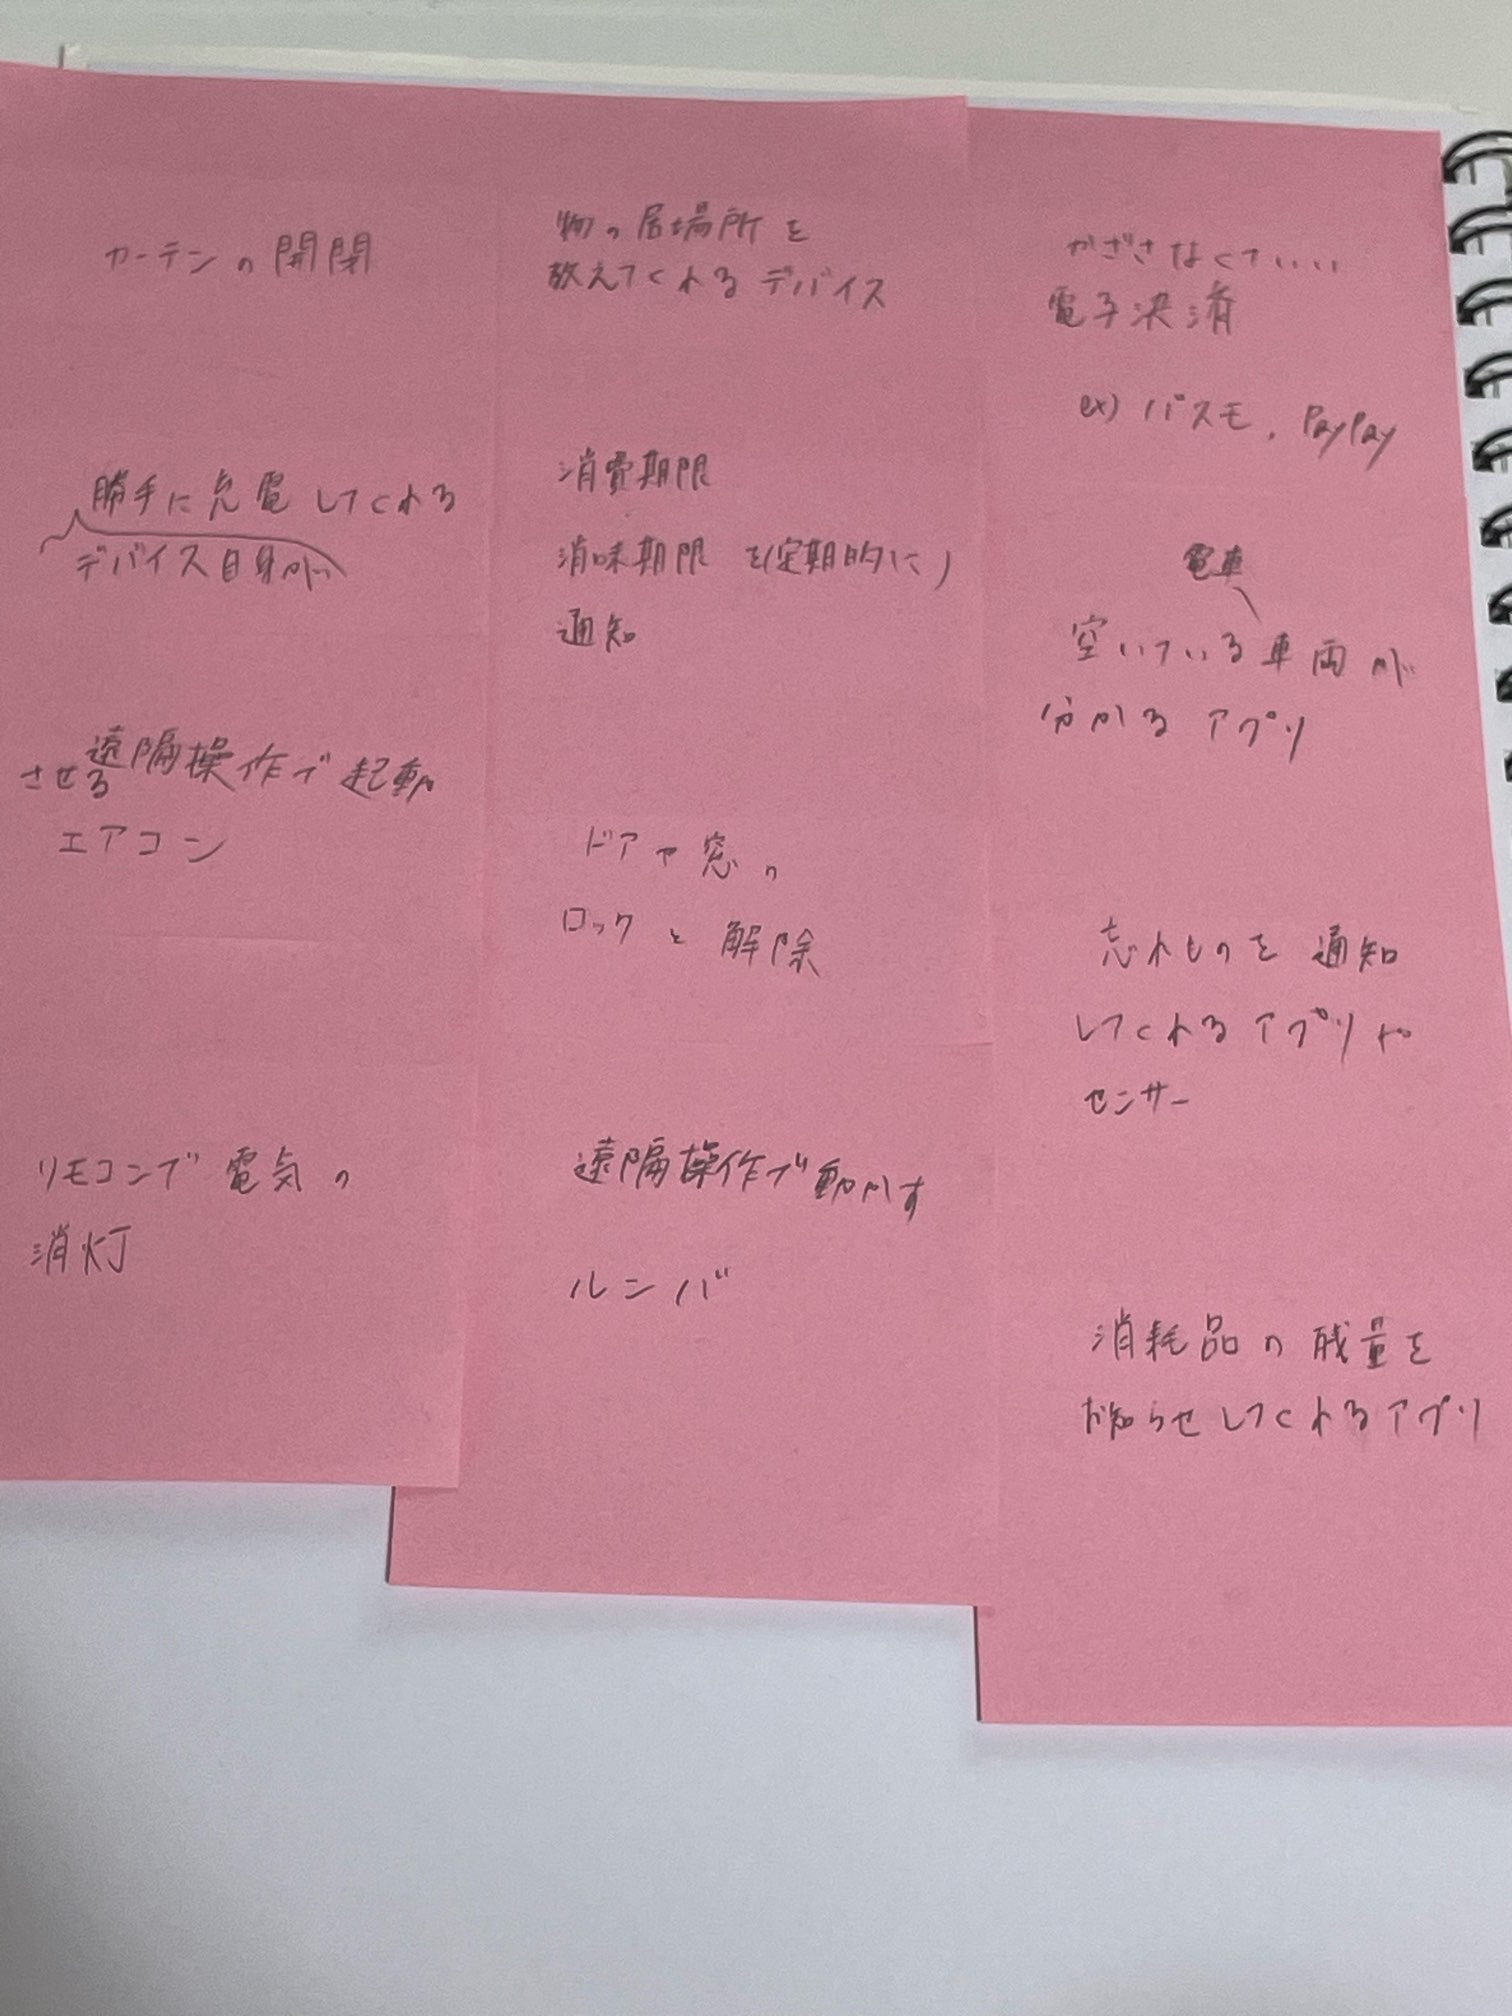 カーテンの開閉
勝手に充電してくれる
デバイス自身が
遠隔操作で起動
させる
エアコン
リモコンで電気の
消灯
物の居場所を
教えてくれるデバイス
消費期限
消味期限を(定期的に)
通知
ドアや窓の
ロックと解除
遠隔操作で動かす
ルンバ
かざさなくていい
電子決済
ex) パスモ, PayPay
電車
空いている車両が
分かるアプリ
忘れものを通知
してくれるアプリや
センサー
消耗品の残量を
お知らせしてくれるアプリ